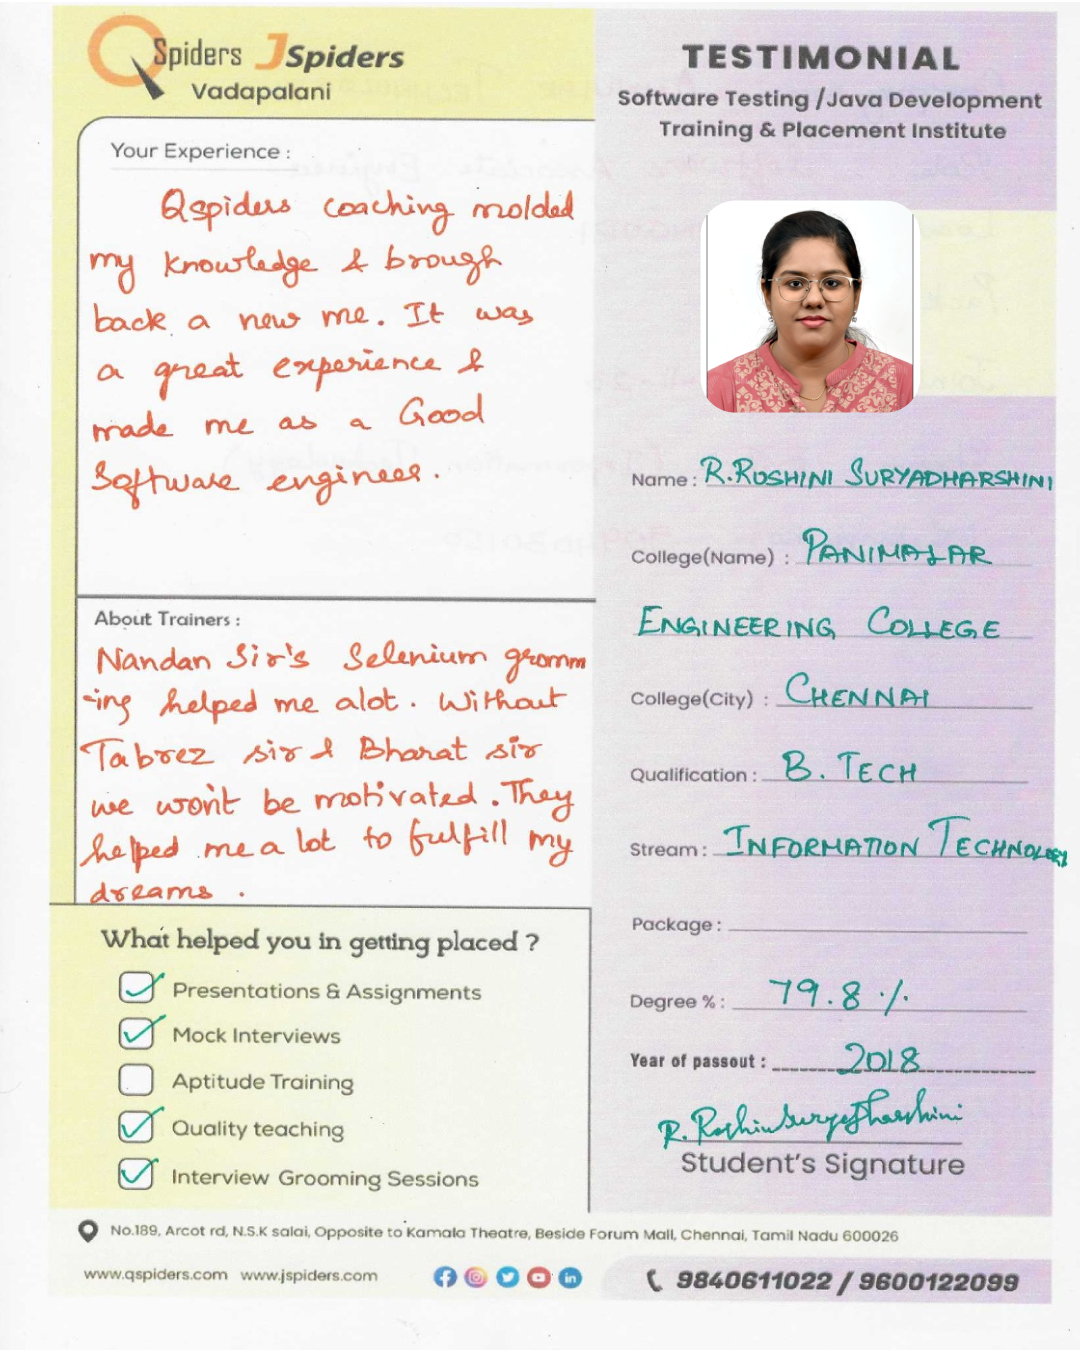 QSpiders JSpiders
Vadapalani
TESTIMONIAL
Software Testing /Java Development
Training & Placement Institute
Your Experience :
Qspiders coaching molded
my knowledge & brough
back a new me. It was
a great experience &
made me as a Good
Software engineer.
About Trainers :
Nandan Sir's Selenium gromm
-ing helped me alot. Without
Tabrez sir & Bharat sir
we won't be motivated. They
helped me a lot to fulfill my
dreams .
What helped you in getting placed ?
Presentations & Assignments
Mock Interviews
Aptitude Training
Quality teaching
Interview Grooming Sessions
Name : R.ROSHINI SURYADHARSHINI
College(Name) : PANIMALAR
ENGINEERING COLLEGE
College(City) : CHENNAI
Qualification : B. TECH
Stream : INFORMATION TECHNOLOGY
Package :
Degree % : 79.8 %
Year of passout : 2018
R. Roshini Suryadharshini
Student's Signature
No.189, Arcot rd, N.S.K salai, Opposite to Kamala Theatre, Beside Forum Mall, Chennai, Tamil Nadu 600026
www.qspiders.com www.jspiders.com
9840611022 / 9600122099